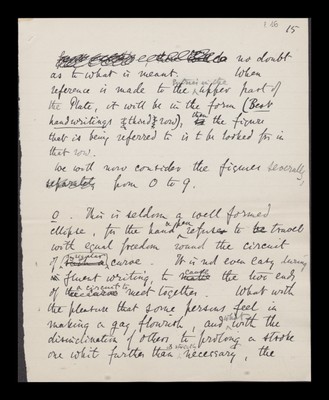 15
no doubt
as to what is meant. When
reference is made to the upper part of
the Plate, it will be in the form (Best
handwritings, third row), then the figure
that is being referred to is to be looked for in
that row.
We will now consider the figures severally,
separately from 0 to 9.
0. This is seldom a well formed
ellipse, for the hand refuses to travel
with equal freedom round the circuit
of curve. It is not even easy during
fluent writing, to the two ends
of meet together. What with
the pleasure that some persons feel in
making a gay flourish, and what with the
disinclination of others to prolong a stroke
one whit further than necessary, the